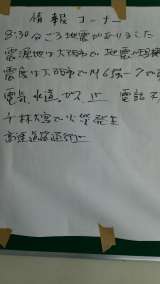 情報コーナー
8:30分ころ地震がありました
震源地は大阪市で地震の規模
震度は大阪市でM6弱〜7で
電気、水道、ガス 止 電話不
千林大宮で火災発生
高速道路通行止